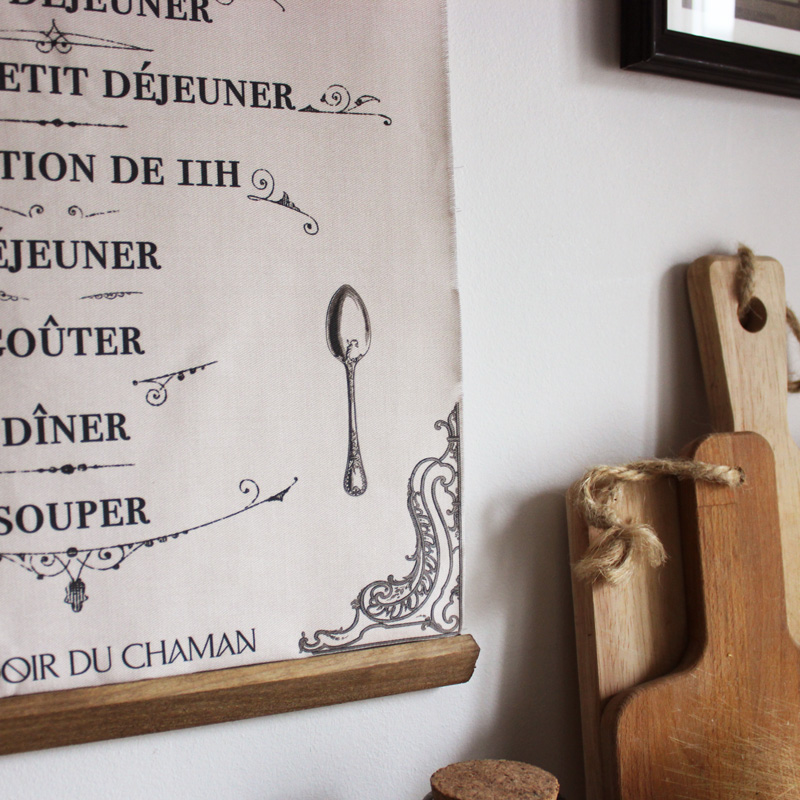 DÉJEUNER
ETIT DÉJEUNER
TION DE 11H
ÉJEUNER
GOÛTER
DÎNER
SOUPER
OIR DU CHAMAN